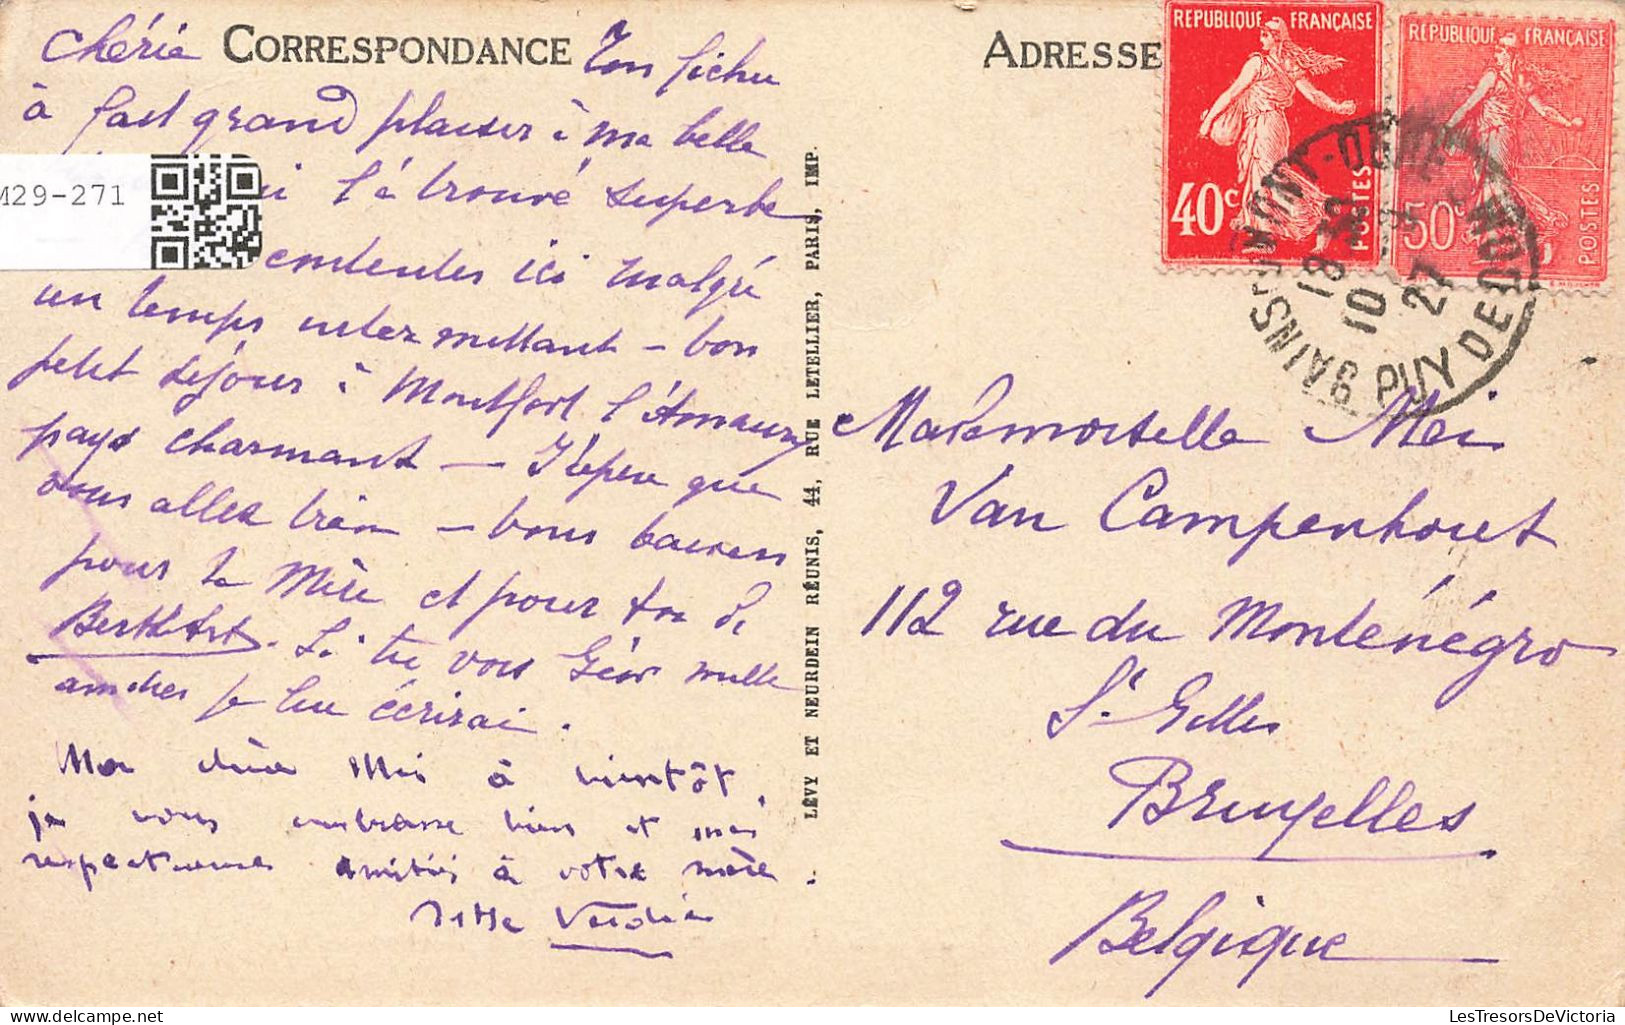 CORRESPONDANCE
Chérie Ton fichu
à fait grand plaisir à ma belle
qui l'a trouvé superbe
contentes ici malgré
un temps intermittant - bon
petit séjour à Montfort l'Amaury
pays charmant - J'espère que
vous allez bien - bons baisers
pour ta Mère et pour toi de
Berthe. Si tu vois Géo mille
amitiés je lui écrirai.
Ma chère Mei à bientôt,
je vous embrasse bien et mes
respectueuses amitiés à votre mère.
ADRESSE
Mademoiselle Mei
Van Campenhout
112 rue du Monténégro
St Gilles
Bruxelles
Belgique
LÉVY ET NEURDEIN RÉUNIS, 44, RUE LETELLIER, PARIS, IMP.
REPUBLIQUE FRANÇAISE
40c
POSTES
REPUBLIQUE FRANÇAISE
50c
POSTES
PUY DE DOME
18
10
27
M29-271
delcampe.net
LesTresorsDeVictoria